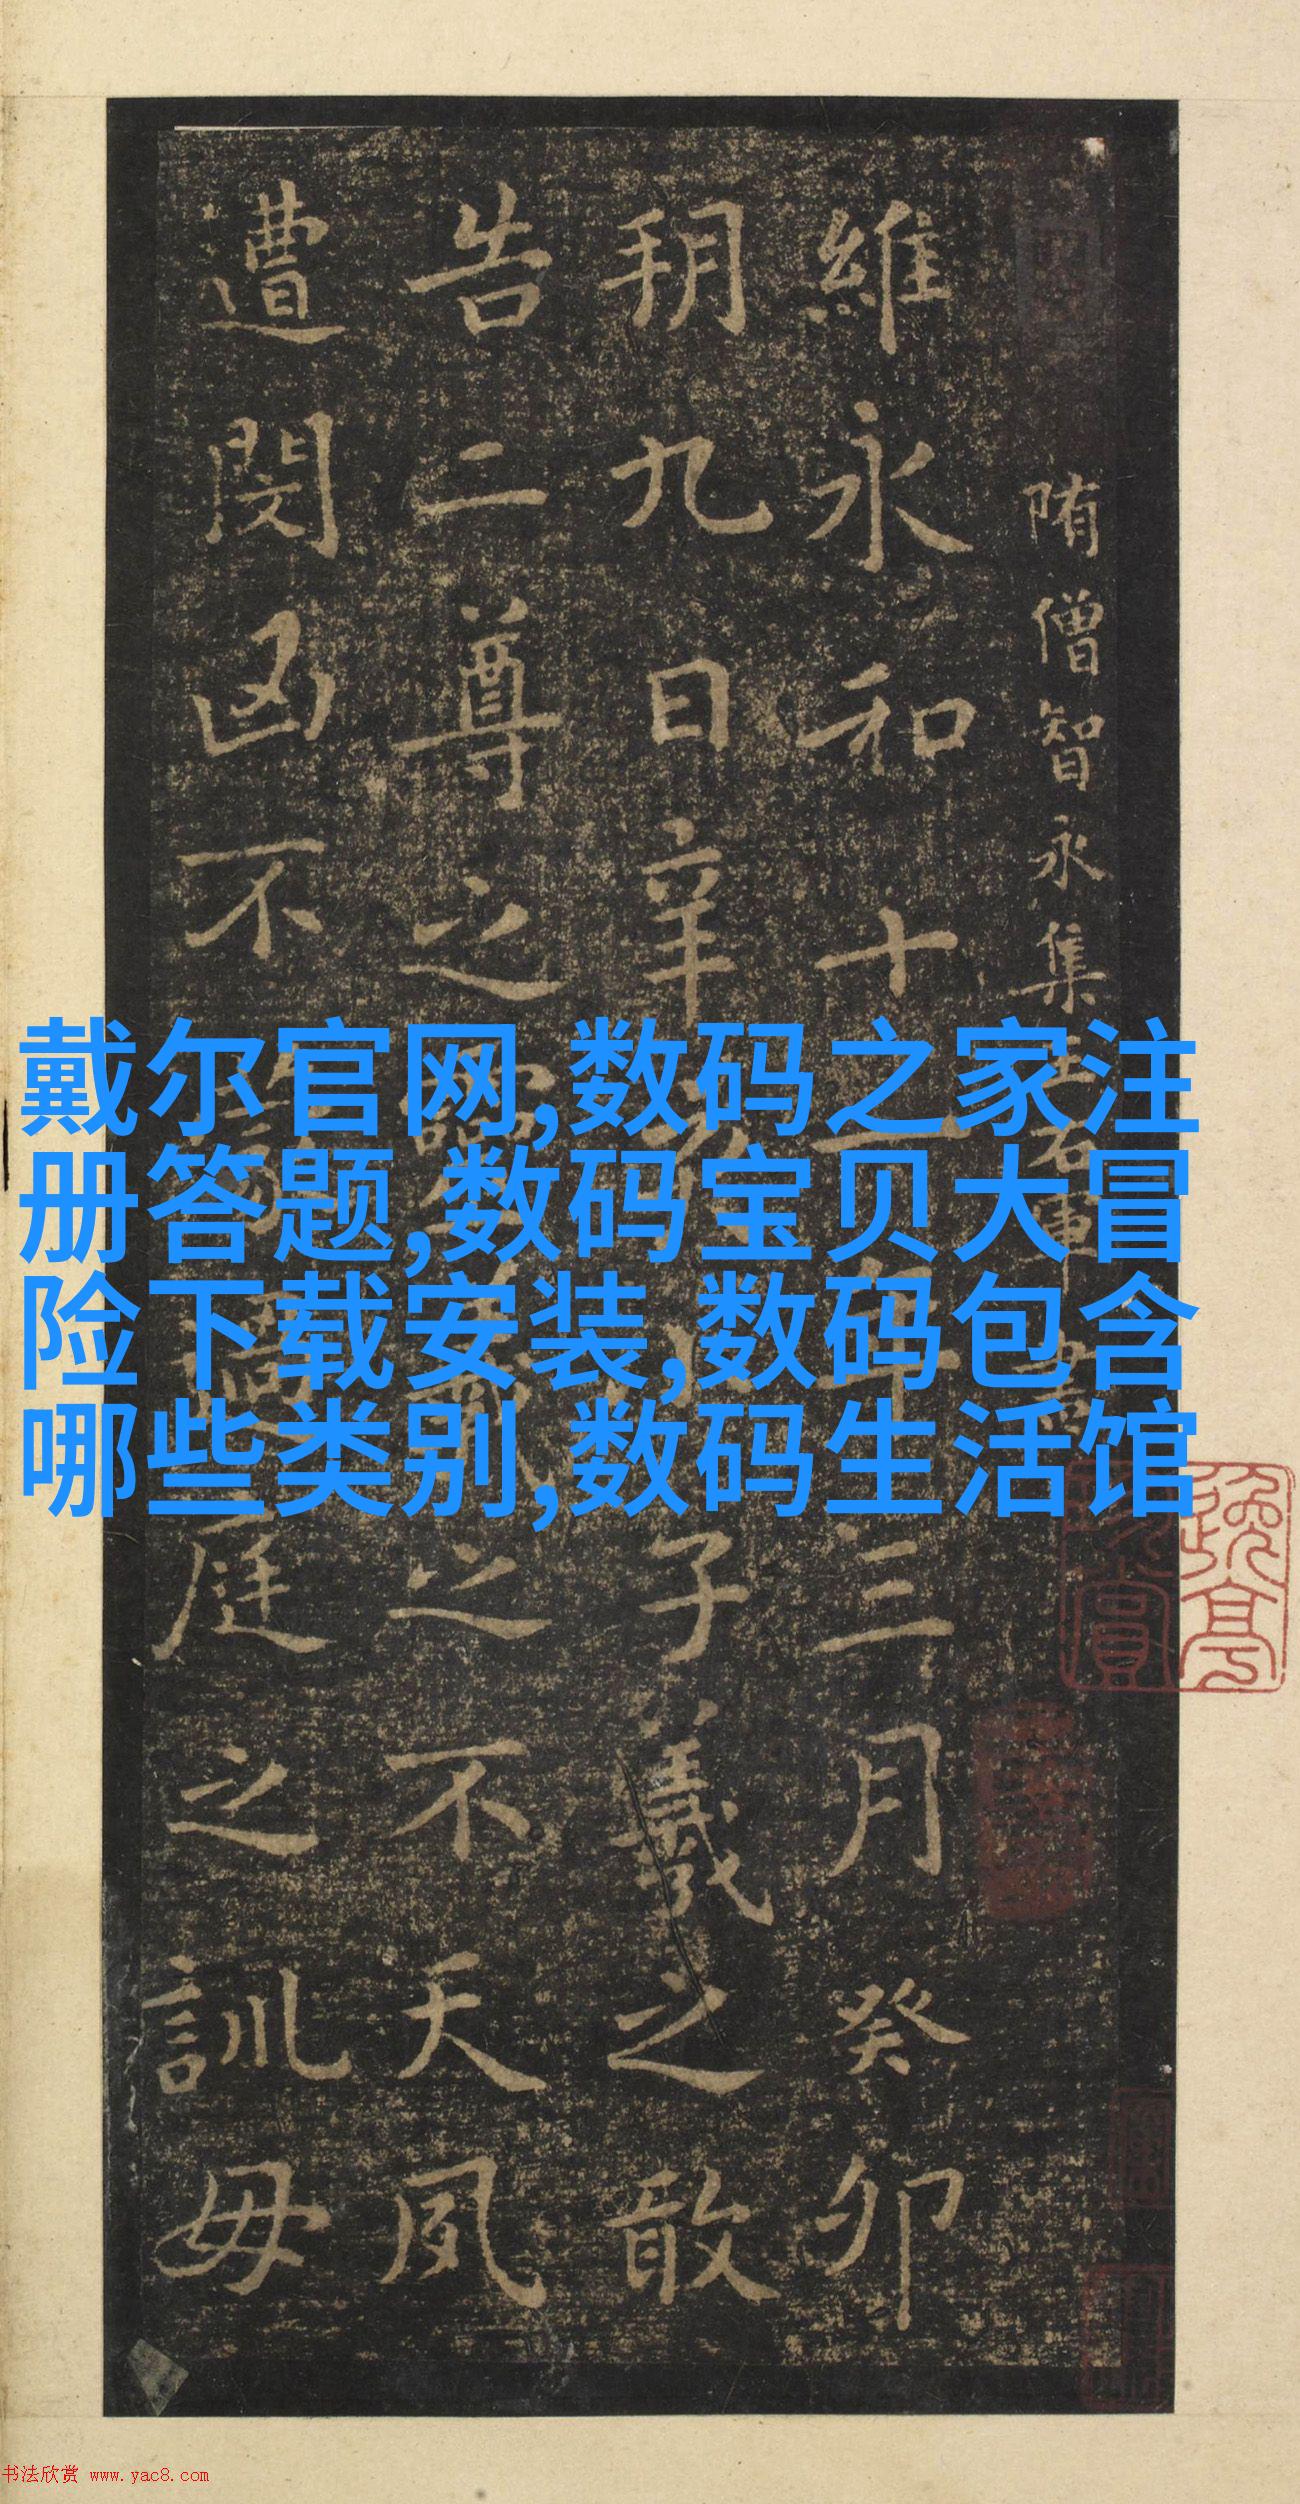 隋僧智永集
維永和十
三月癸卯
朔九日辛
子羲之敢
告二尊之
之不天夙
遭閔凶不
庭之訓毋
戴尔官网,数码之家注
册答题,数码宝贝大冒
险下载安装,数码包含
哪些类别,数码生活馆
书法欣赏 www.yac8.com